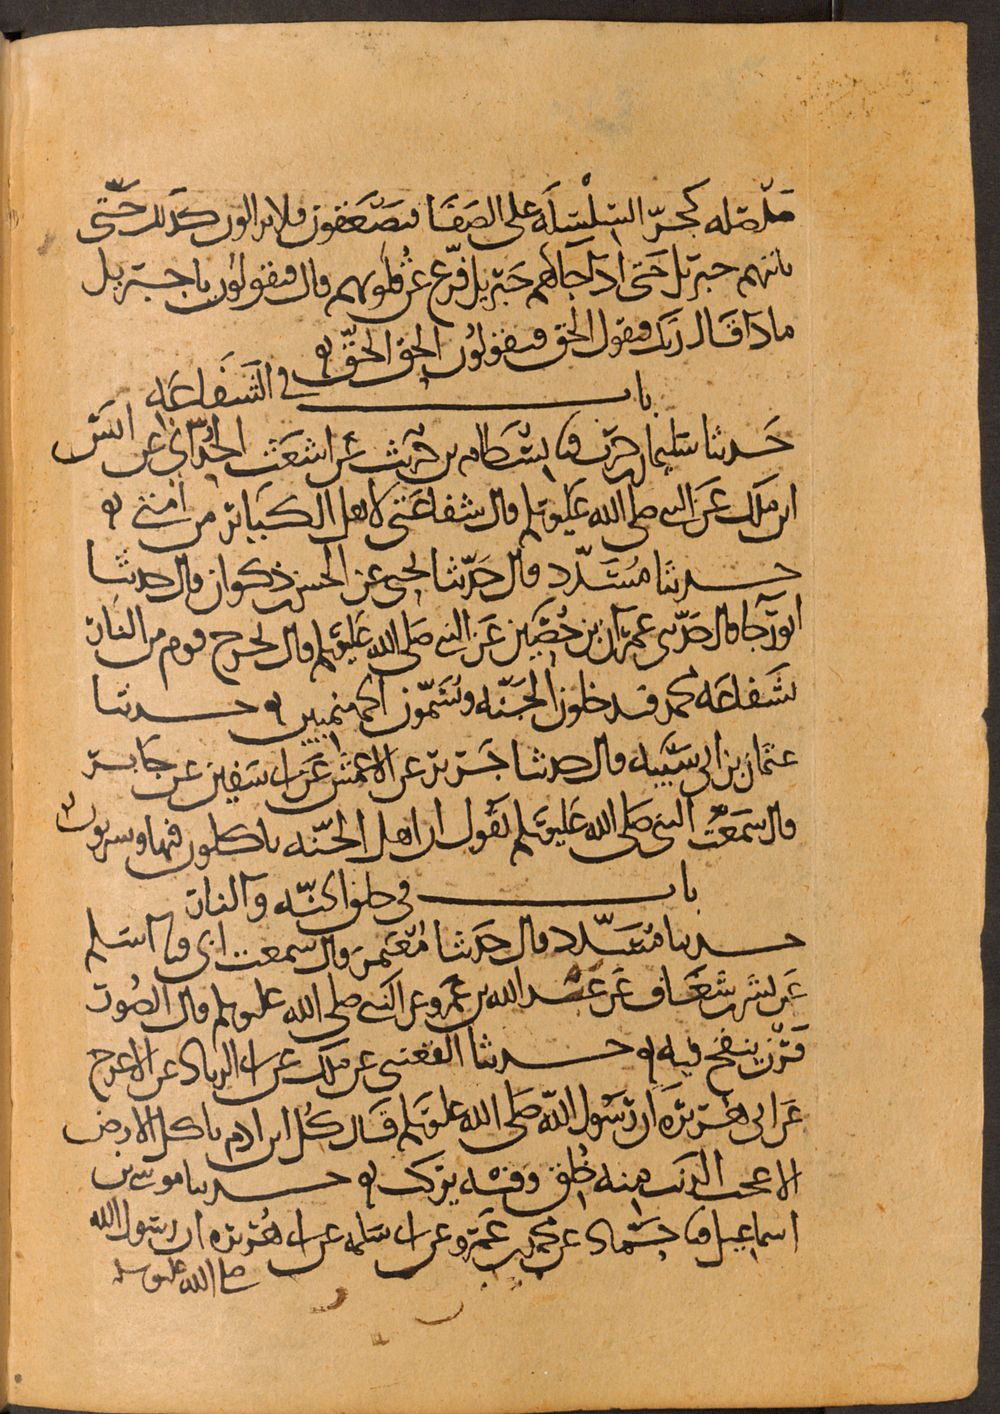 صلصله كجر السلسله على الصفا فيصعقون فلا يزالون كذلك حتى
ياتيهم جبريل حتى اذا جاهم جبريل فزع عن قلوبهم قال فيقولون يا جبريل
ماذا قال ربك فيقول الحق فيقولون الحق الحق
باب في الشفاعه
حدثنا سليمان بن حرب نا بسطام بن حريث عن اشعث الحداني عن انس
ابن ملك عن النبي صلى الله عليه وسلم قال شفاعتي لاهل الكبائر من امتي
حدثنا مسدد قال حدثنا يحيى عن الحسن بن ذكوان قال حدثنا
ابو رجا قال حدثني عمران بن حصين عن النبي صلى الله عليه وسلم قال يخرج قوم من النار
بشفاعه محمد فيدخلون الجنه ويسمون الجهنميين حدثنا
عثمان بن ابي شيبه قال حدثنا جرير عن الاعمش عن ابي سفين عن جابر
قال سمعت النبي صلى الله عليه وسلم يقول ان اهل الجنه ياكلون فيها ويشربون
باب في خلق الجنه والنار
حدثنا مسدد قال حدثنا معتمر قال سمعت ابي نا اسلم
عن بشر بن شغاف عن عبد الله بن عمرو عن النبي صلى الله عليه وسلم قال الصور
قرن ينفخ فيه حدثنا القعنبي عن ملك عن ابي الزناد عن الاعرج
عن ابي هريره ان رسول الله صلى الله عليه وسلم قال كل ابن ادم ياكل الارض
الا عجب الذنب منه خلق وفيه يركب حدثنا موسى بن
اسماعيل نا حماد عن محمد بن عمرو عن ابي سلمه عن ابي هريره ان رسول الله
صلى الله عليه وسلم